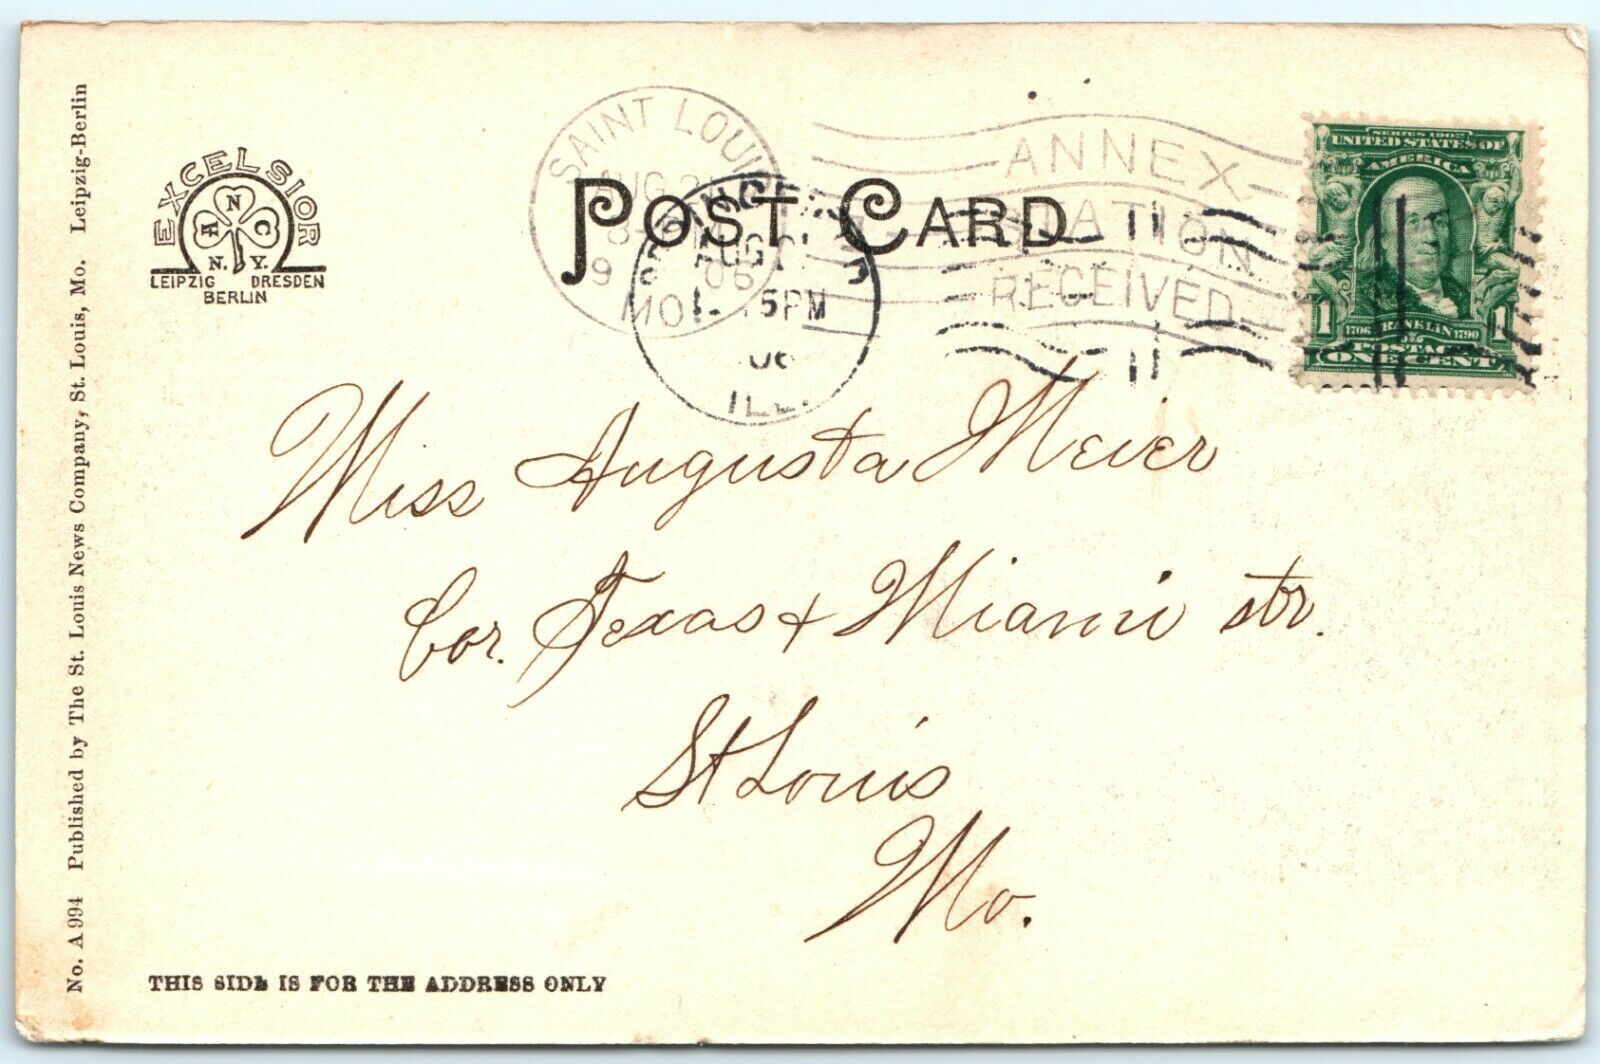 No. A 994 Published by The St. Louis News Company, St. Louis, Mo. Leipzig-Berlin
EXCELSIOR
A N C
N. Y.
LEIPZIG DRESDEN
BERLIN
SAINT LOUIS
AUG
MO.
AUG
5PM
06
ILL.
POST CARD
ANNEX
STATION
RECEIVED
SERIES 1902
UNITED STATES OF
AMERICA
1 1706 FRANKLIN 1790 1
POSTAGE
ONE CENT
Miss Augusta Meier
Cor. Texas & Miami str.
St Louis
Mo.
THIS SIDE IS FOR THE ADDRESS ONLY